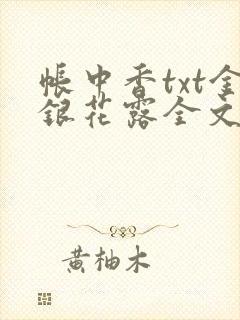 帐中香txt金
银花露全文
黄柚木